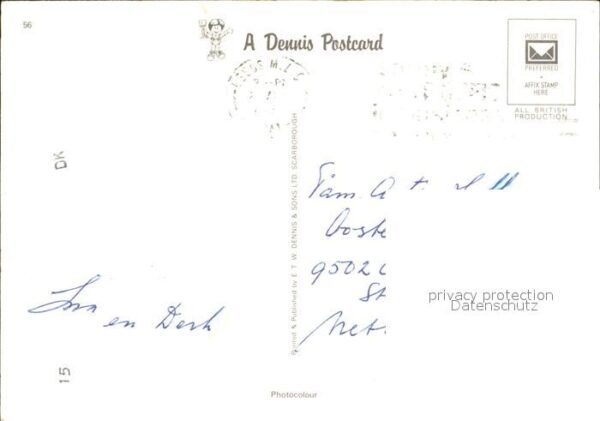 56
A Dennis Postcard
POST OFFICE
PREFERRED
AFFIX STAMP
HERE
ALL BRITISH
PRODUCTION
DK
15
Printed & Published by E. T. W. DENNIS & SONS LTD. SCARBOROUGH
Fam
Ooste
9502
St
Net
en Derk
privacy protection
Datenschutz
Photocolour